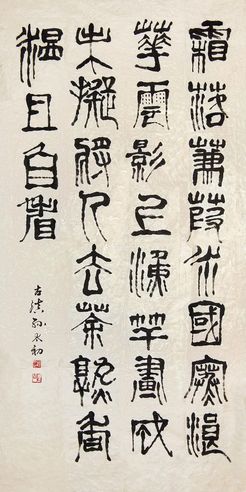 霜落蒹葭水國寒浪
華雲影上漁竿畫成
未擬將人去茶熟香
溫且自看
古滇孫太初